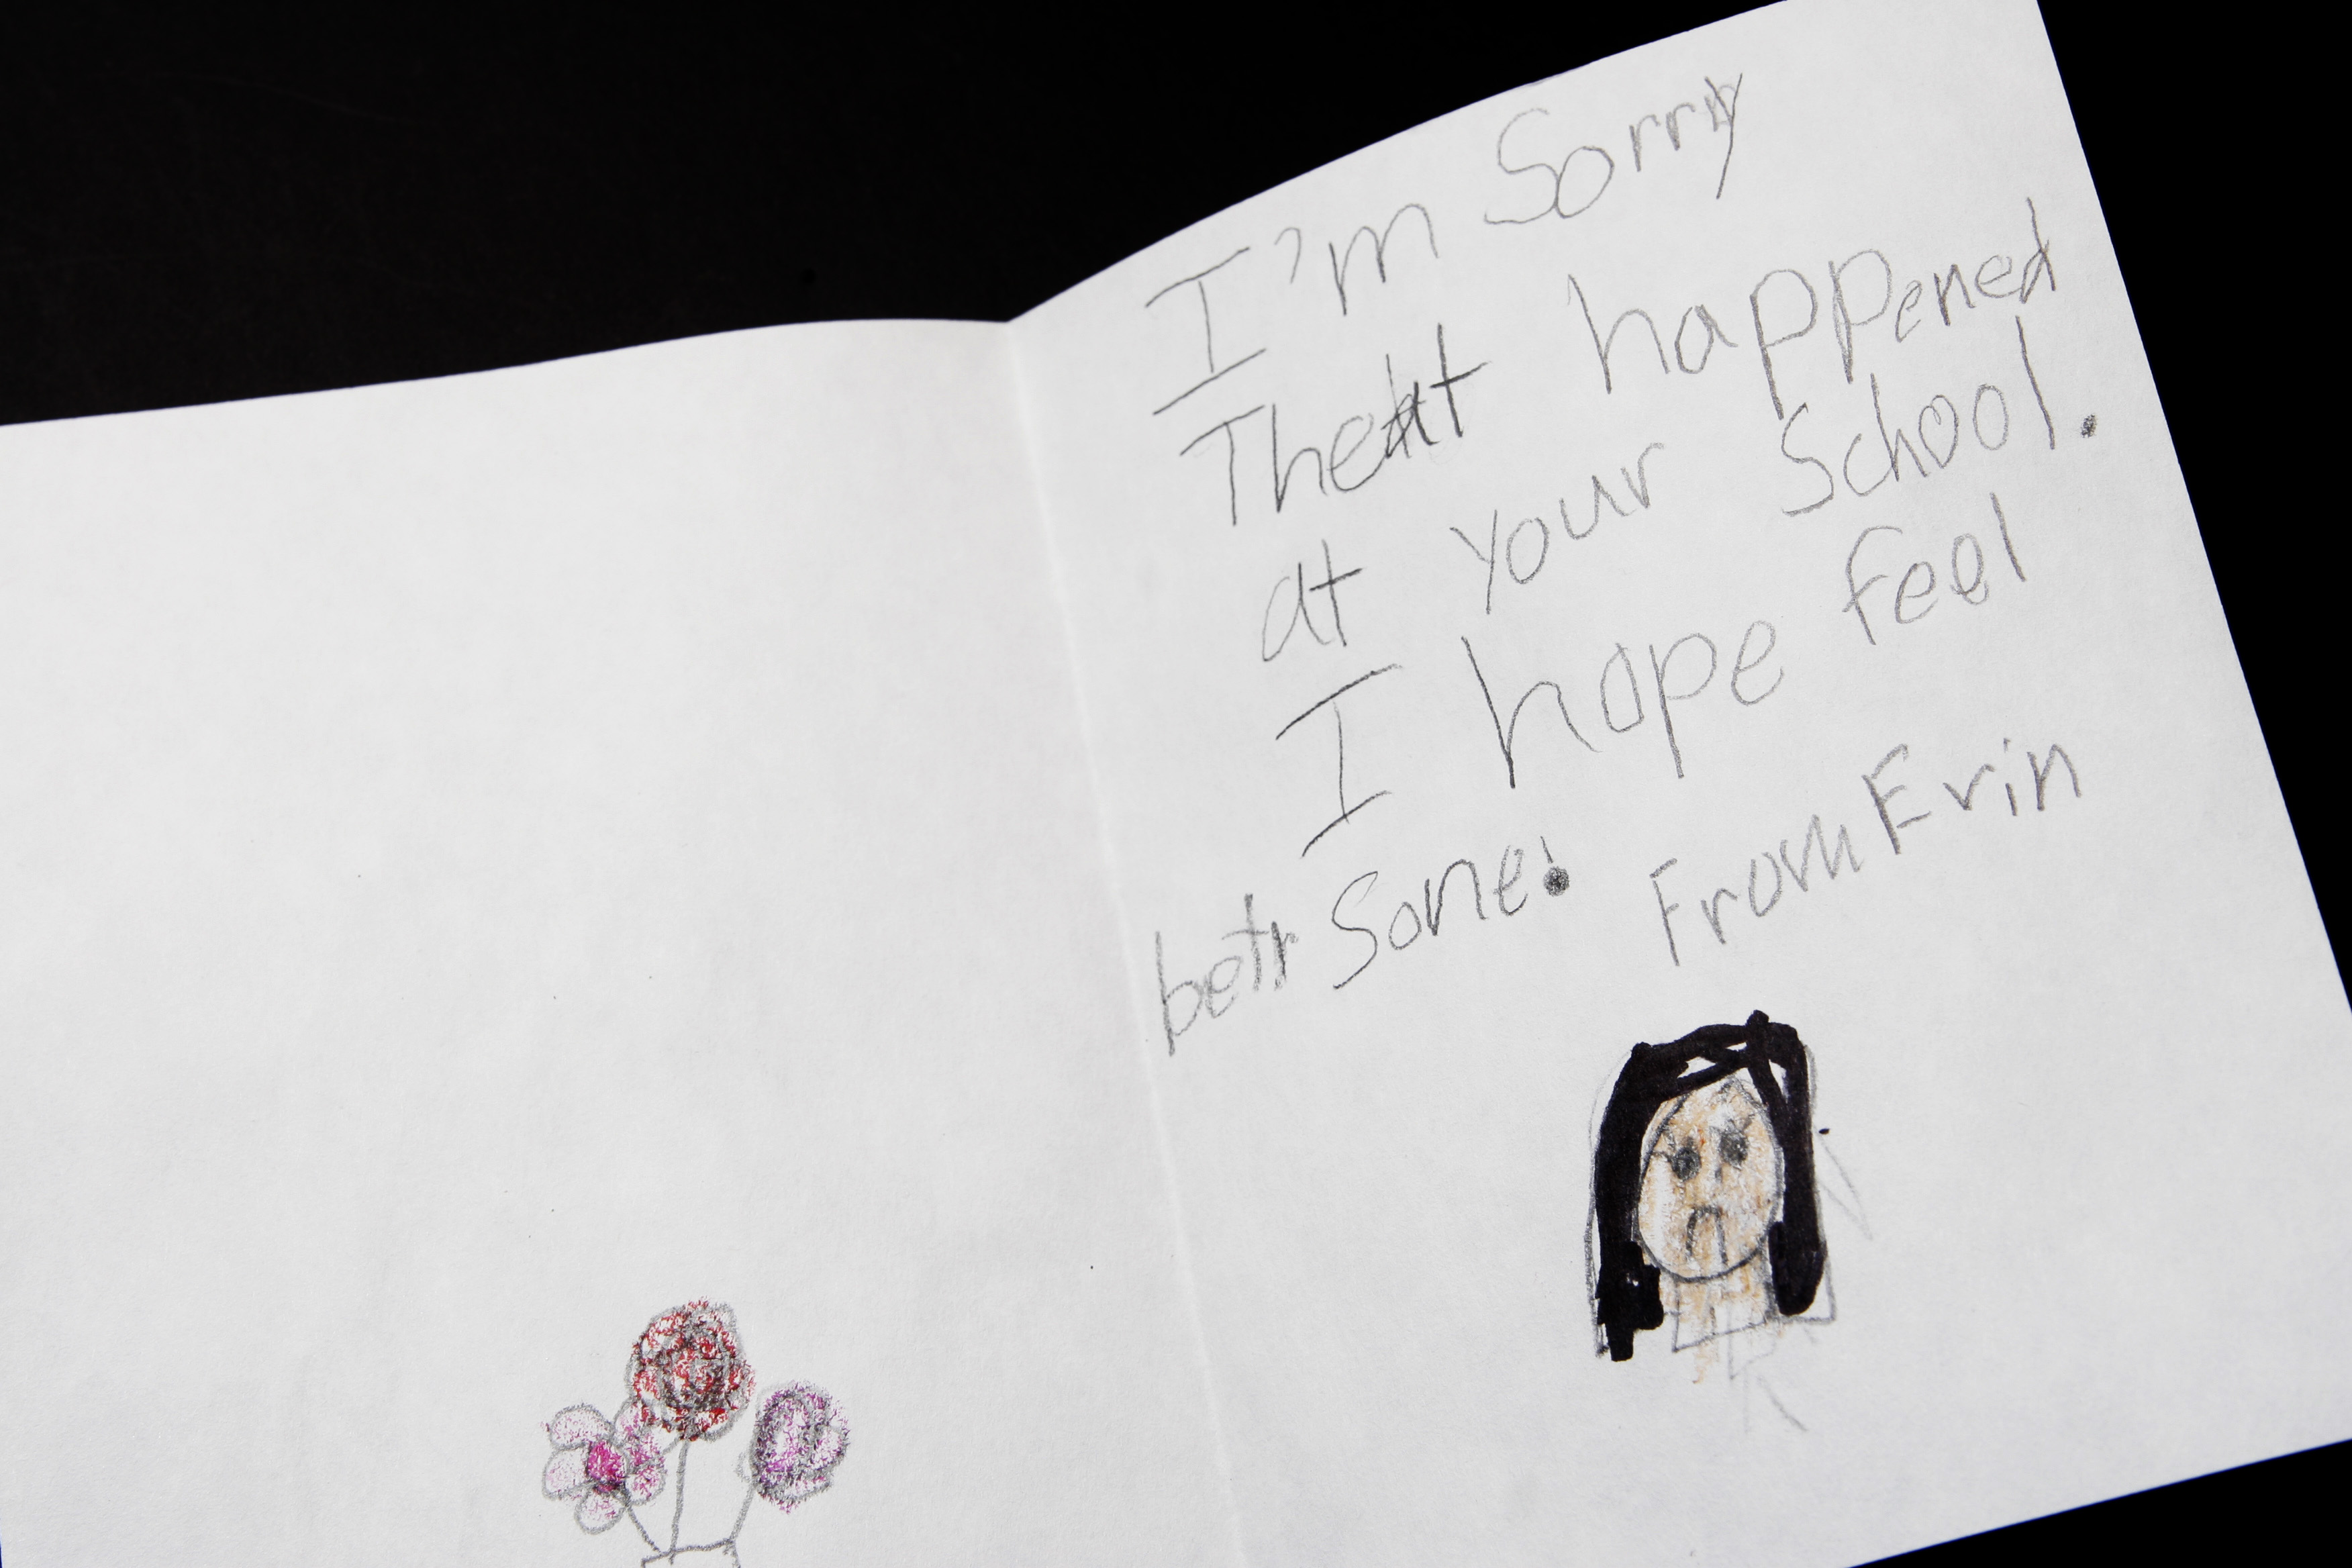 I'm Sorry
That happened
at your School.
I hope feel
betr Sone!
From Erin